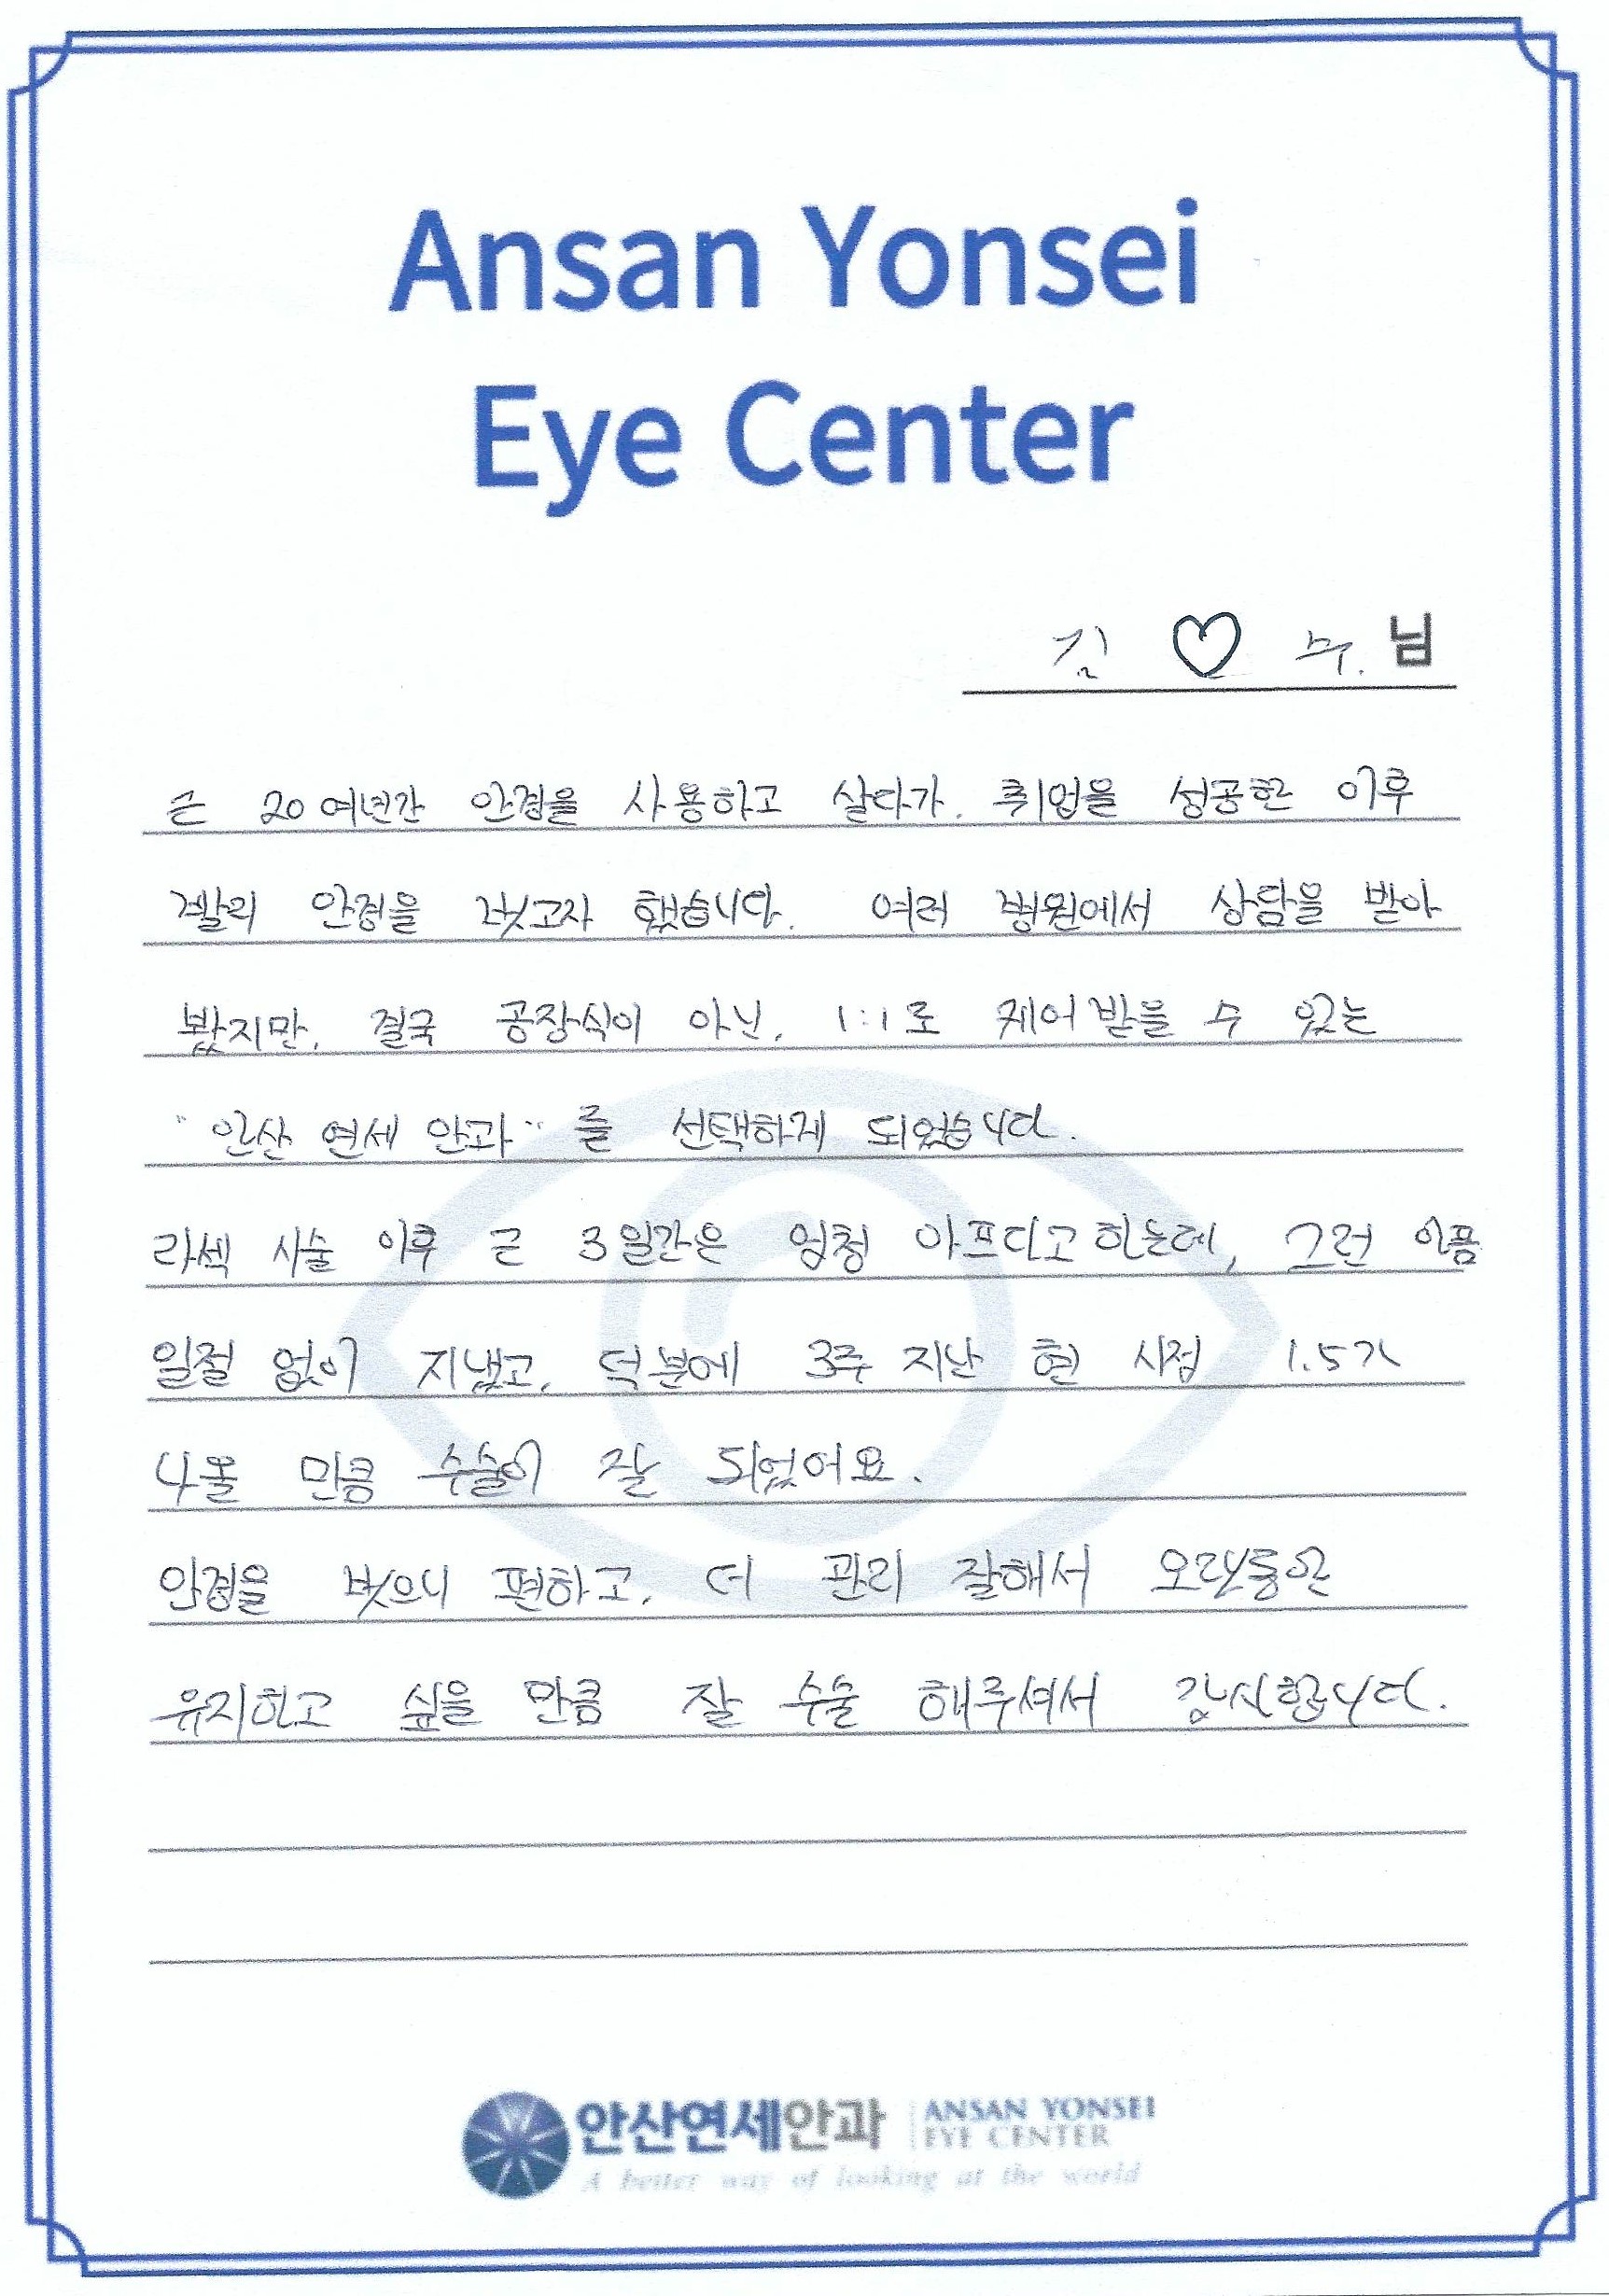 Ansan Yonsei
Eye Center
김 ♡ 수. 님
근 20여년간 안경을 사용하고 살다가, 취업을 성공한 이후
안경을 벗고자 했습니다. 여러 병원에서 상담을 받아
봤지만, 결국 공장식이 아닌, 1:1로 케어 받을 수 있는
"안산 연세 안과"를 선택하게 되었습니다.
라섹 시술 이후 근 3일간은 엄청 아프다고 하는데, 그런 아픔
일절 없이 지냈고, 덕분에 3주 지난 현 시점 1.5가
나올 만큼 수술이 잘 되었어요.
안경을 벗으니 편하고, 더 관리 잘해서 오랫동안
유지하고 싶을 만큼 잘 수술 해주셔서 감사합니다.
안산연세안과 ANSAN YONSEI
EYE CENTER
A better way of looking at the world